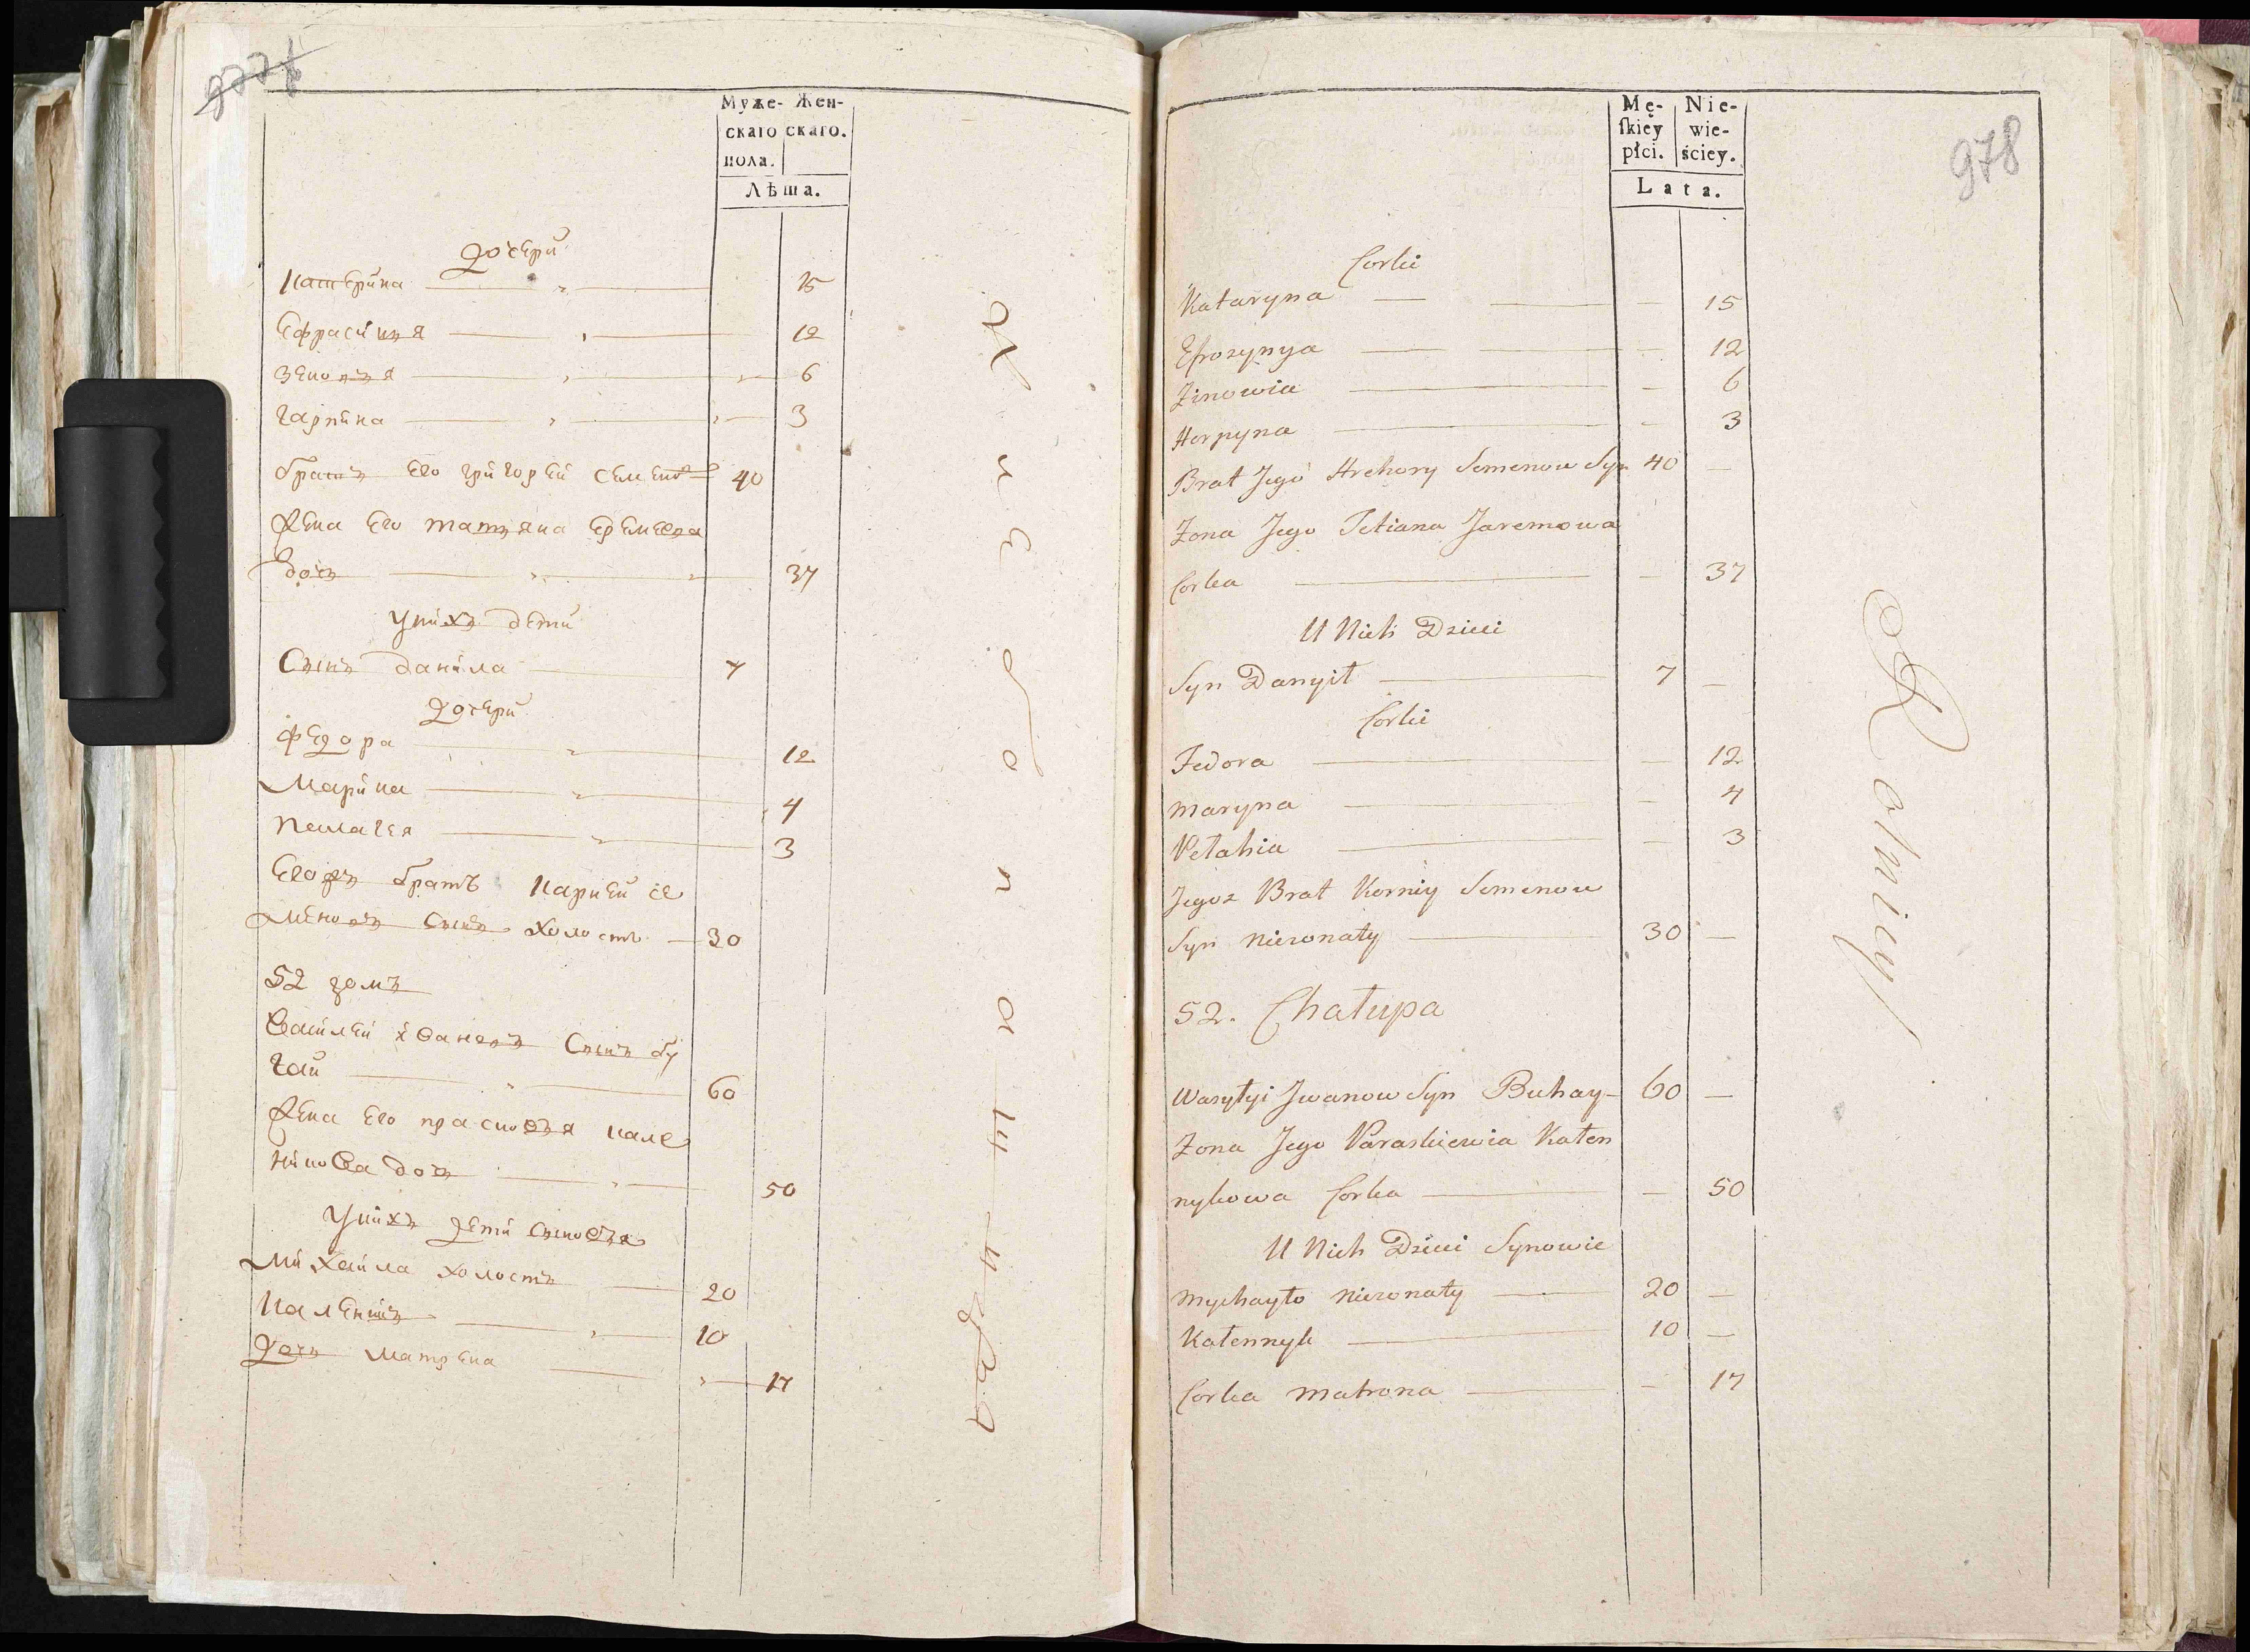 977б
Муже- Жен-
скаго скаго.
пола.
Лѣта.
Дочери
Катерина 15
Ефрасиня 12
Зеновъя 6
Гарпина 3
братъ его григорей семенов 40
Жена его татъяна еремеева
дочь 37
У нихъ дети
Сынъ данила 7
Дочери
Федора 12
Марина 4
Пелагея 3
Его жъ братъ Карней се
меновъ Сынъ холостъ 30
52 домъ
Василей ивановъ Сынъ бу
гай 60
Жена его прасковъя кале
никова дочь 50
У нихъ дети сыновъя
Михайла холостъ 20
Каленикъ 10
Дочь матрена 17
Mę-
skiey
płci.
Nie-
wie-
ściey.
Lata.
978
Corki
Kataryna 15
Efrozynya 12
Zinowia 6
Horpyna 3
Brat Jego Hrehory Semenow Syn 40
Zona Jego Tetiana Jaremowa
Corka 37
U Nich Dzieci
Syn Danyił 7
Corki
Fedora 12
Maryna 4
Pełahia 3
Jegoz Brat Korniy Semenow
Syn niezonaty 30
52. Chałupa
Wasylyi Jwanow Syn Buhay 60
Zona Jego Paraskiewia Kałen
nykowa Corka 50
U Nich Dzieci Synowie
Mychayło niezonaty 20
Kałennyk 10
Corka Matrona 17
Rolniey